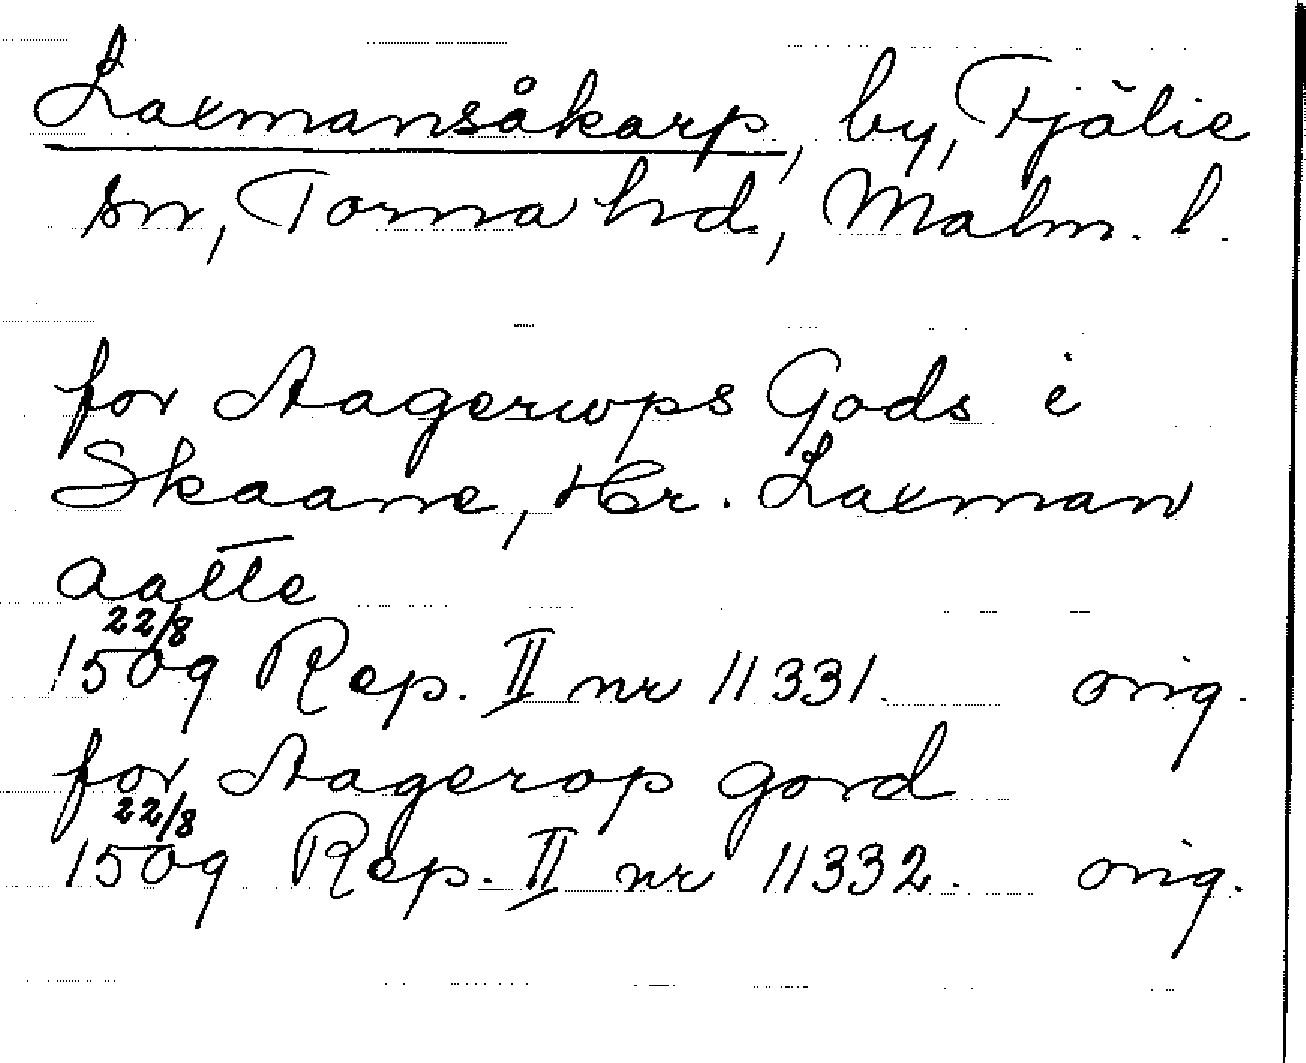 Laxmansåkarp, by, Fjälie
sn, Torna hd, Malm. l.
for Aagerwps Gods i
Skaane, Her. Laxman
aatte
22/8
1509 Rep. II nr 11331. orig.
for Aagerop gord
22/8
1509 Rep. II nr 11332. orig.